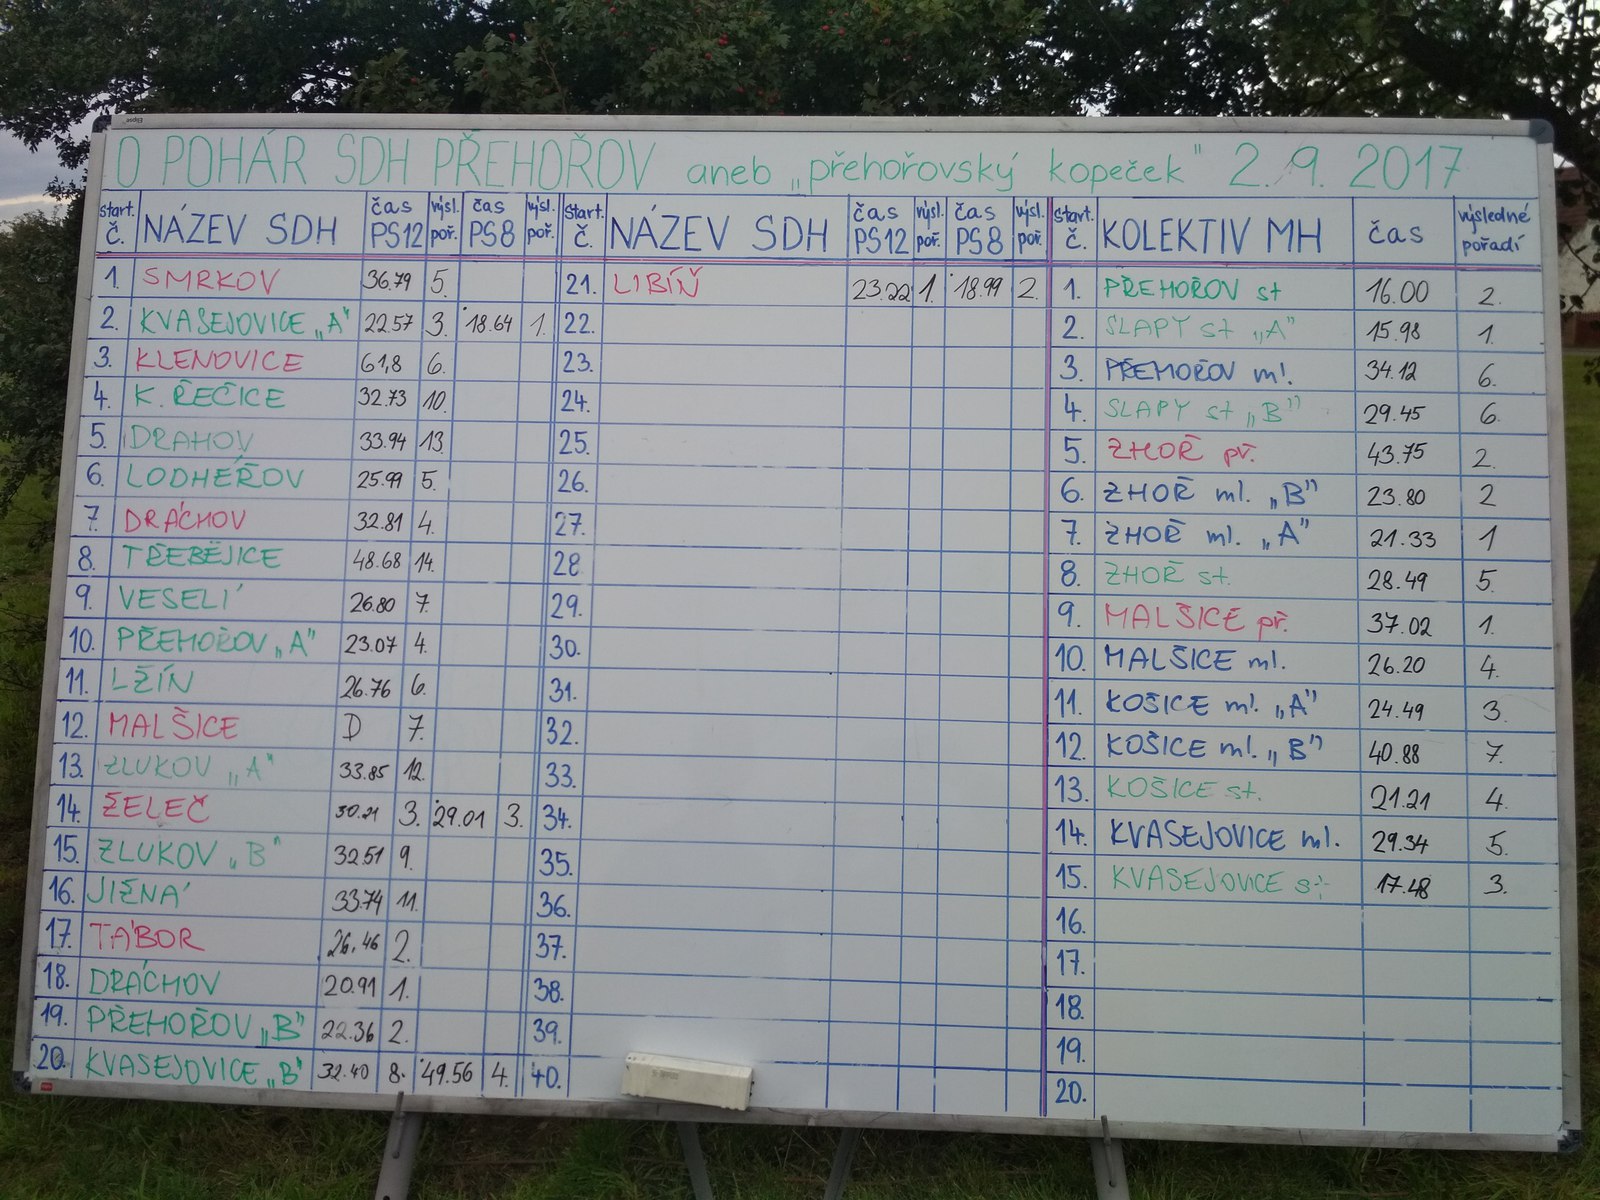 O POHÁR SDH PŘEHOŘOV aneb „přehořovský kopeček" 2. 9. 2017
Start. č. NÁZEV SDH čas PS12 výsl. poř. čas PS8 výsl. poř. Start. č. NÁZEV SDH čas PS12 výsl. poř. čas PS8 výsl. poř. Start. č. KOLEKTIV MH čas výsledné pořadí
1. SMRKOV 36.79 5. 21. LIBÍŇ 23.22 1. 18.99 2. 1. PŘEHOŘOV st 16.00 2.
2. KVASEJOVICE „A" 22.57 3. 18.64 1. 22. 2. SLAPY st „A" 15.98 1.
3. KLENOVICE 61,8 6. 23. 3. PŘEHOŘOV ml. 34.12 6.
4. K. ŘEČICE 32.73 10. 24. 4. SLAPY st „B" 29.45 6.
5. DRAHOV 33.94 13. 25. 5. ZHOŘ př. 43.75 2.
6. LODHÉŘOV 25.99 5. 26. 6. ZHOŘ ml. „B" 23.80 2
7. DRÁCHOV 32.81 4. 27. 7. ZHOŘ ml. „A" 21.33 1
8. TŘEBĚJICE 48.68 14. 28 8. ZHOŘ st. 28.49 5.
9. VESELÍ 26.80 7. 29. 9. MALŠICE př. 37.02 1.
10. PŘEHOŘOV „A" 23.07 4. 30. 10. MALŠICE ml. 26.20 4.
11. LŽÍN 26.76 6. 31. 11. KOŠICE ml. „A" 24.49 3.
12. MALŠICE D 7. 32. 12. KOŠICE ml. „B" 40.88 7.
13. ZLUKOV „A" 33.85 12. 33. 13. KOŠICE st. 21.21 4.
14. ŽELEČ 30.21 3. 29.01 3. 34. 14. KVASEJOVICE ml. 29.34 5.
15. ZLUKOV „B" 32.51 9. 35. 15. KVASEJOVICE st. 17.48 3.
16. JIŽNÁ 33.74 11. 36. 16.
17. TÁBOR 26.46 2. 37. 17.
18. DRÁCHOV 20.91 1. 38. 18.
19. PŘEHOŘOV „B" 22.36 2. 39. 19.
20. KVASEJOVICE „B" 32.40 8. 49.56 4. 40. 20.